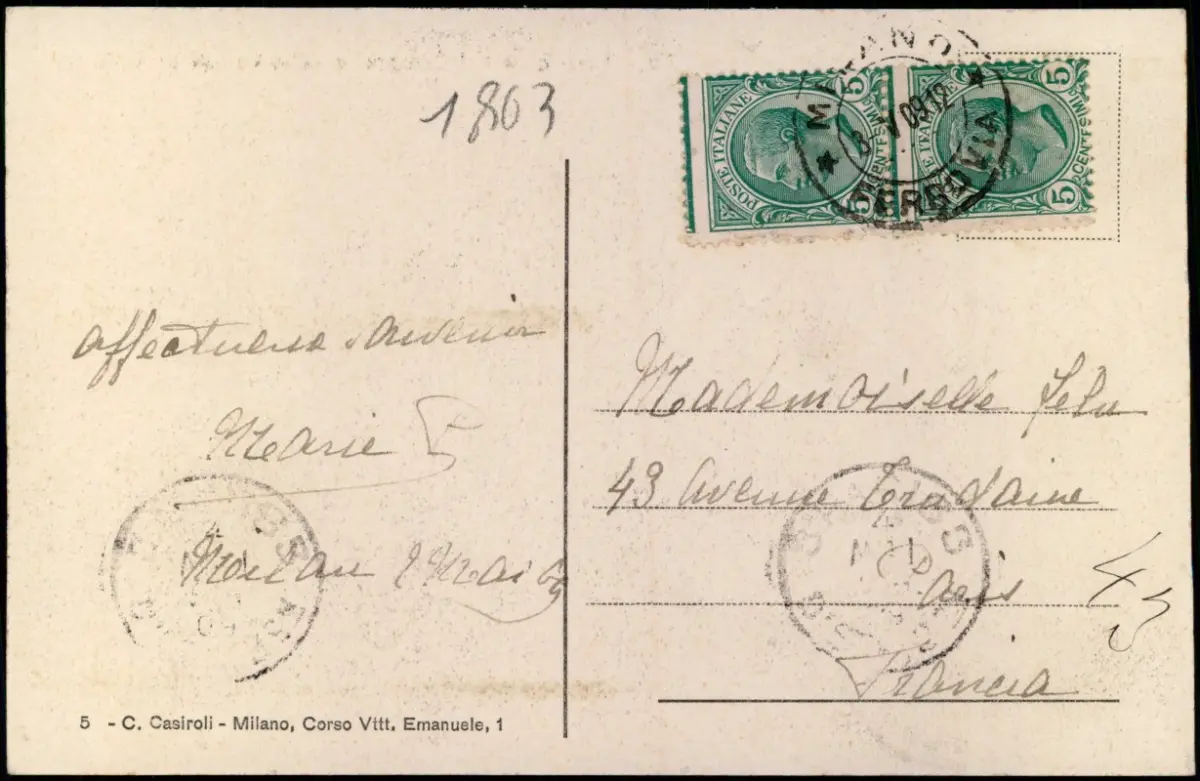 1803
POSTE ITALIANE
5 CENTESIMI 5
POSTE ITALIANE
5 CENTESIMI 5
MILANO
8 V 09 12
FERROVIA
affectueux souvenir
Marie
Milan Mai 09
Mademoiselle
43 Avenue Trudaine
Paris
Francia
43
5 - C. Casiroli - Milano, Corso Vttt. Emanuele, 1